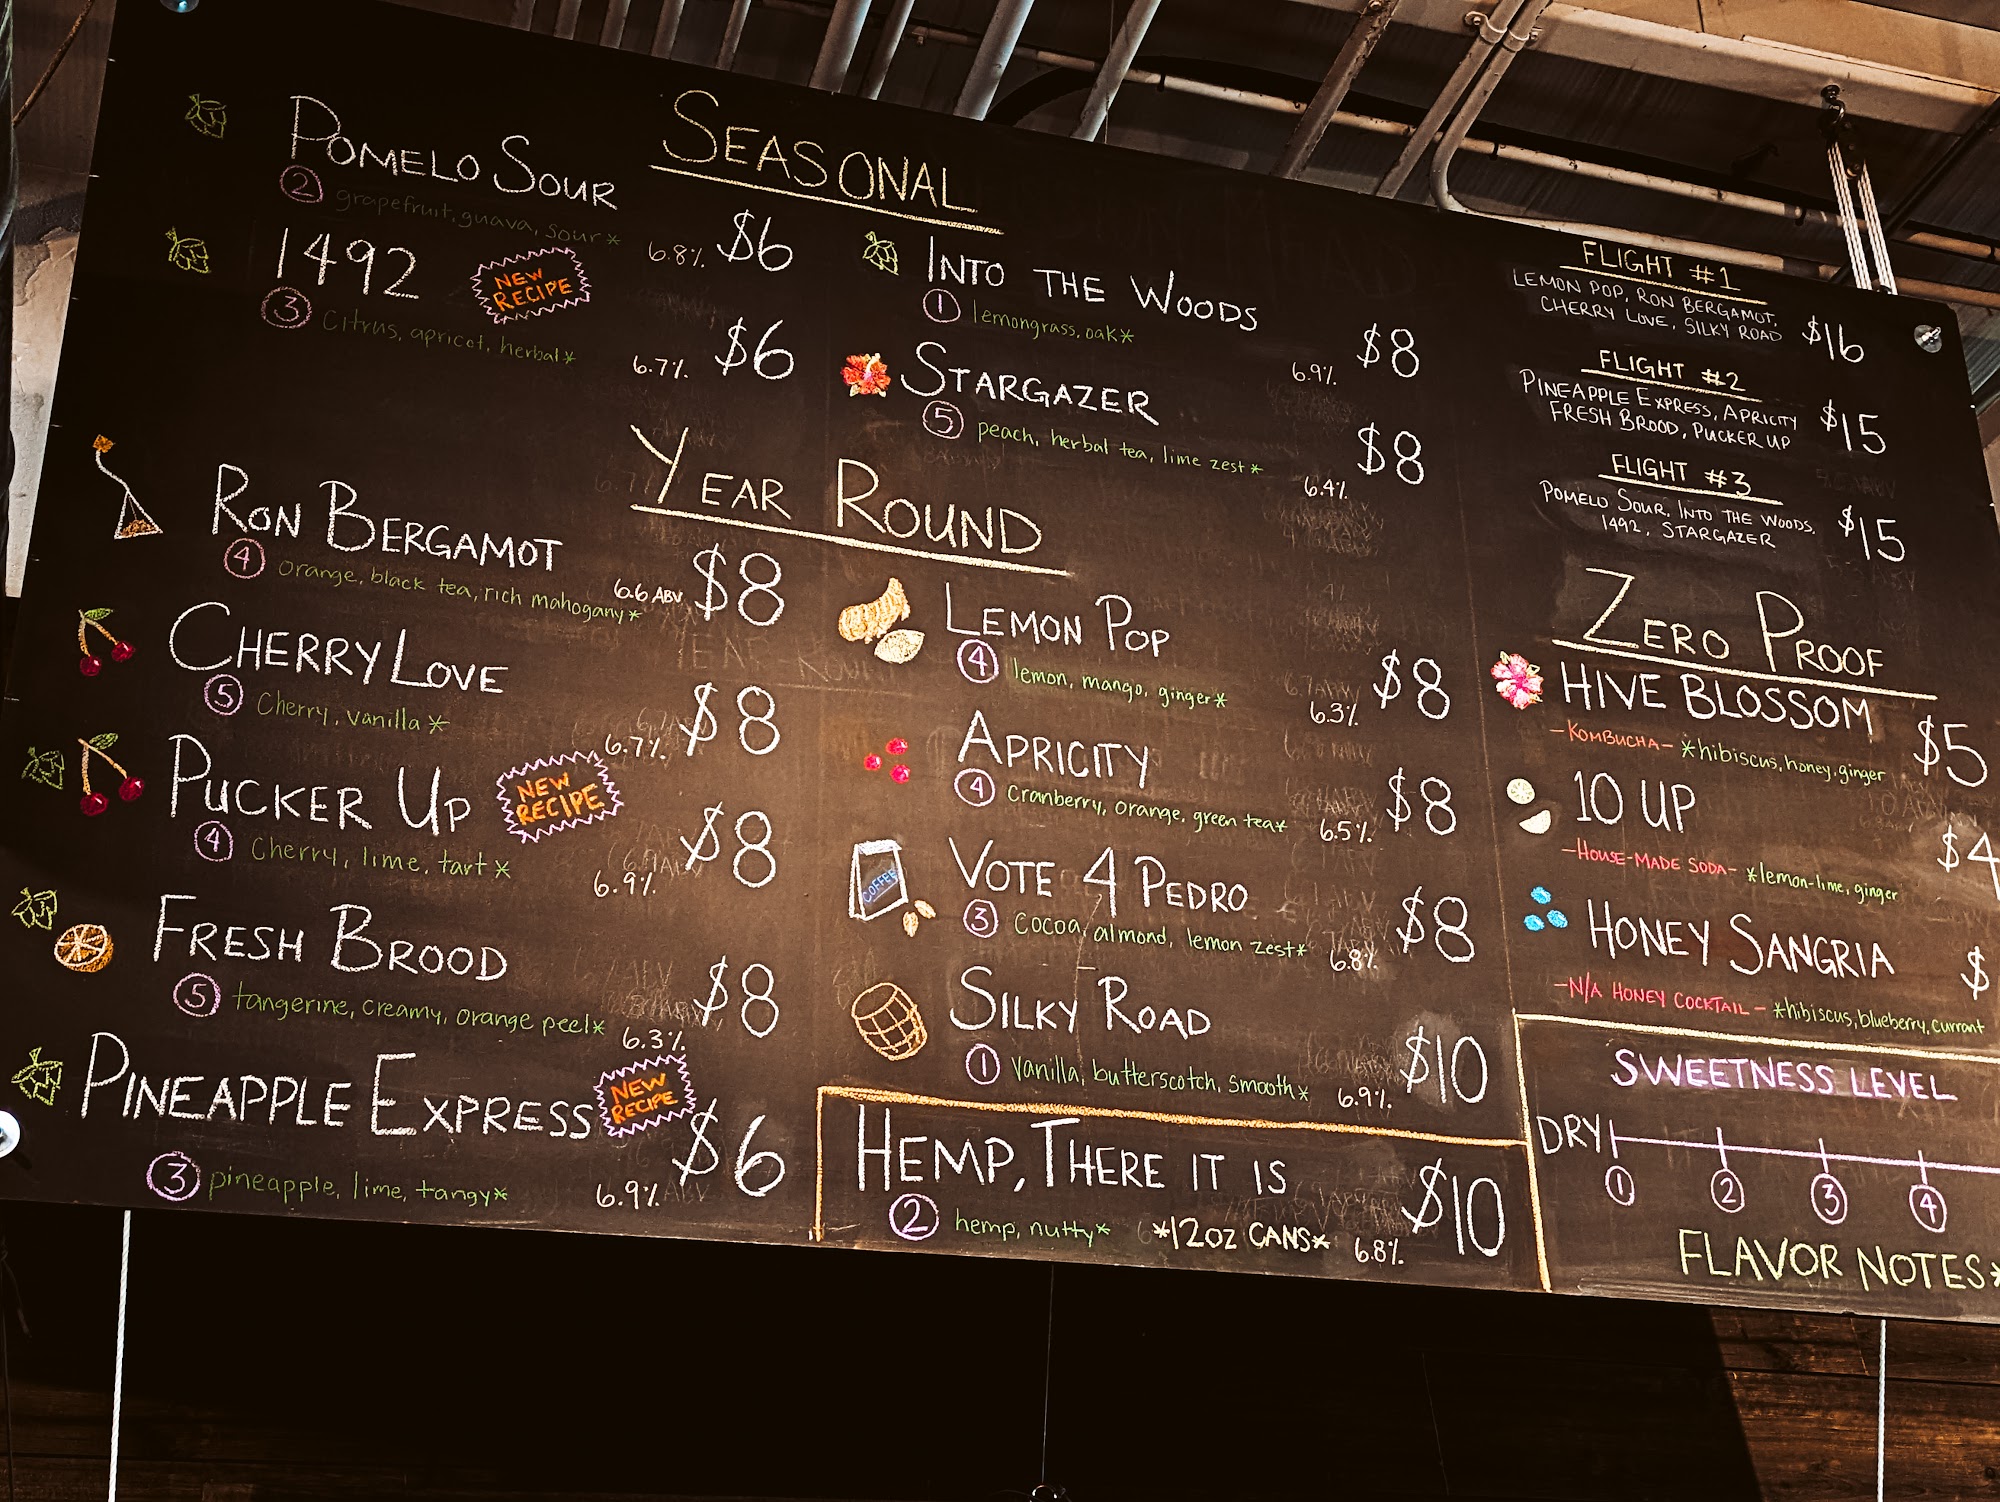 SEASONAL
POMELO SOUR
② grapefruit, guava, sour*
6.8% $6
1492
NEW
RECIPE
③ Citrus, apricot, herbal*
6.7% $6
INTO THE WOODS
① lemongrass, oak*
6.9% $8
STARGAZER
⑤ peach, herbal tea, lime zest*
6.4% $8
YEAR ROUND
RON BERGAMOT
④ orange, black tea, rich mahogany*
6.6 ABV $8
CHERRY LOVE
⑤ Cherry, vanilla*
6.7% $8
PUCKER UP
NEW
RECIPE
④ Cherry, lime, tart*
6.9% $8
FRESH BROOD
⑤ tangerine, creamy, orange peel*
6.3% $8
PINEAPPLE EXPRESS
NEW
RECIPE
③ pineapple, lime, tangy*
6.9% $6
LEMON POP
④ lemon, mango, ginger*
6.3% $8
APRICITY
④ Cranberry, orange, green tea*
6.5% $8
COFFEE
VOTE 4 PEDRO
③ Cocoa, almond, lemon zest*
6.8% $8
SILKY ROAD
① Vanilla, butterscotch, smooth*
6.9% $10
HEMP, THERE IT IS
② hemp, nutty* *12OZ CANS* 6.8%
$10
FLIGHT #1
LEMON POP, RON BERGAMOT,
CHERRY LOVE, SILKY ROAD
$16
FLIGHT #2
PINEAPPLE EXPRESS, APRICITY
FRESH BROOD, PUCKER UP
$15
FLIGHT #3
POMELO SOUR, INTO THE WOODS,
1492, STARGAZER
$15
ZERO PROOF
HIVE BLOSSOM
-KOMBUCHA- *hibiscus, honey, ginger
$5
10 UP
-HOUSE-MADE SODA- *lemon-lime, ginger
$4
HONEY SANGRIA
-N/A HONEY COCKTAIL- *hibiscus, blueberry, currant
$
SWEETNESS LEVEL
DRY
① ② ③ ④
FLAVOR NOTES*